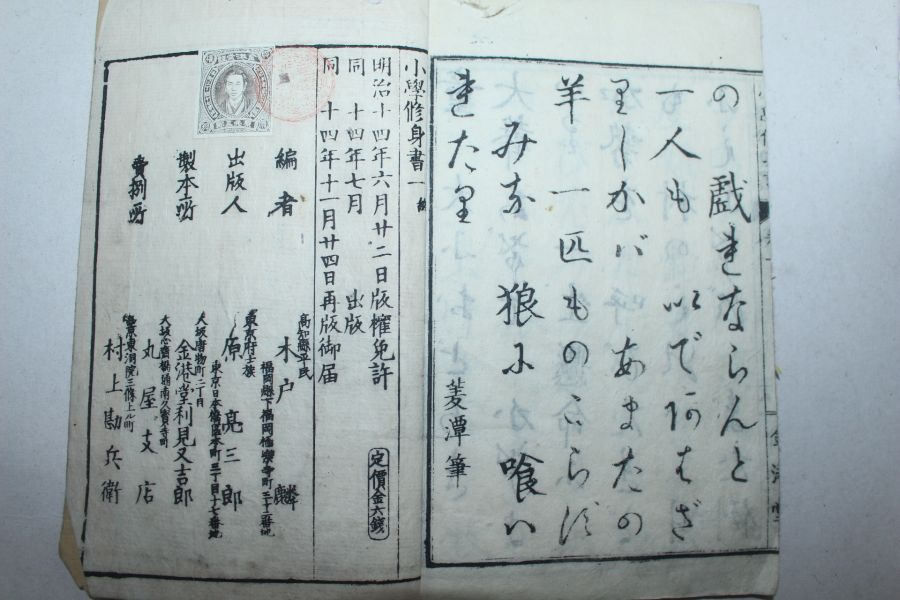 の戯きならんと
一人もいでゝあはざ
りしかバあまたの
羊一匹ものこらず
みな狼に喰い
きたり
菱潭筆
小學修身書一
明治十四年六月廿二日版權免許
同 十四年七月 出版
同 十四年十一月廿四日再版御届
定價金六錢
編者
高知縣平民
木戸麟
福岡縣下福岡極樂寺町三十二番地
出版人
東京府士族
原亮三郎
東京日本橋區本町三丁目十七番地
製本所
大坂唐物町二丁目
金港堂利見又吉郎
賣捌所
大坂心齋橋通南久寶寺町
丸屋支店
東洞院三條上ル町
村上勘兵衛